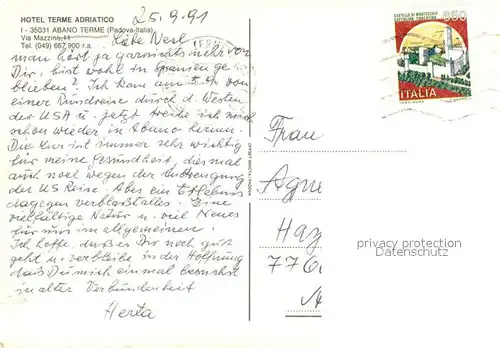 HOTEL TERME ADRIATICO
I - 35031 ABANO TERME (Padova-Italia)
Via Mazzini, 11
Tel. (049) 667 900 r.a.
25.9.91
Liebe Nesl
man hört ja garnichts mehr von
Dir, bist wohl in Spanien ge
blieben? Ich kam am 5.9. von
einer Rundreise durch d. Westen
der USA u. jetzt treibe ich mich
schon wieder in Abano herum.
Die Kur ist immer sehr wichtig
für meine Gesundheit, diesmal
auch noch wegen der Anstrengung
der US Reise. Aber ein Erlebnis
dagegen verblaßt alles. Eine
vielfältige Natur u. viel Neues
für uns im allgemeinen.
Ich hoffe, daß es Dir noch gut
geht u. verbleibe in der Hoffnung
daß Du mich einmal besuchst
in alter Verbundenheit
Herta
CASTELLO DI MONTECCHIO
CASTIGLION FIORENTINO
650
ITALIA
Frau
Agne
Hay
privacy protection
Sammler.com